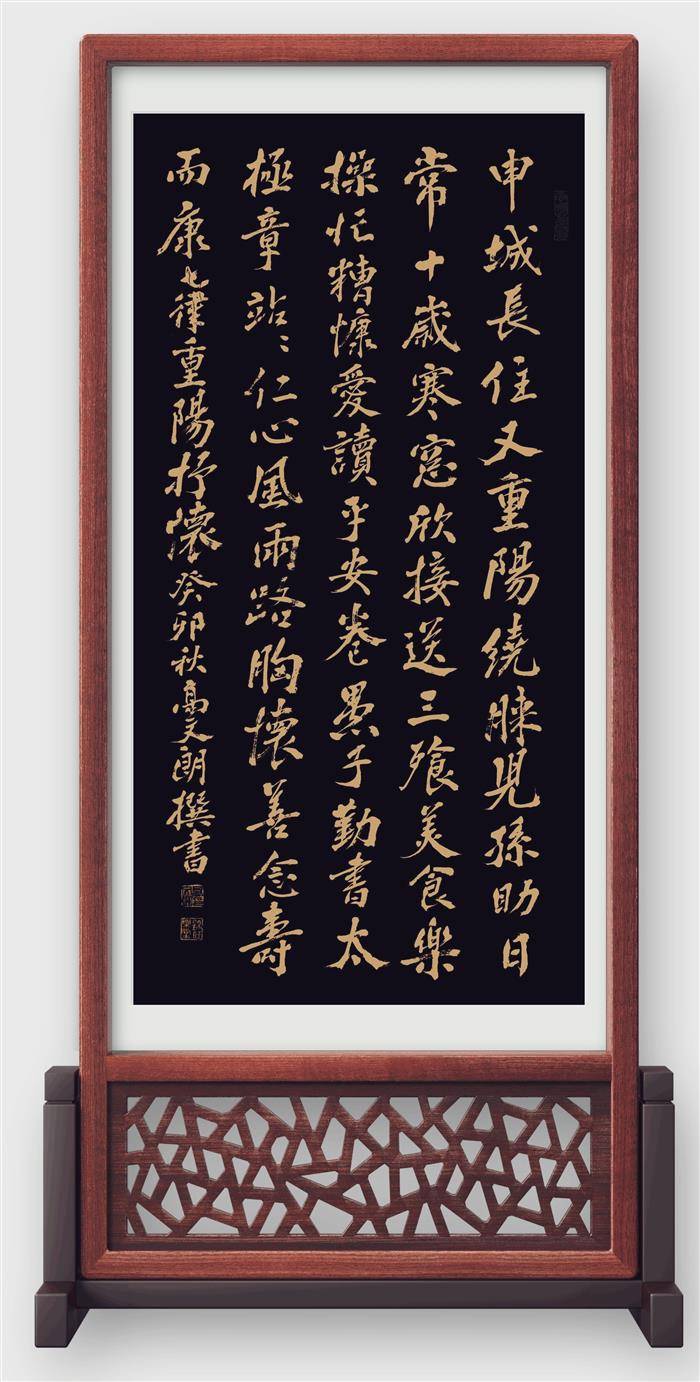 申城長住又重陽繞膝児孫助日
常十歲寒窓欣接送三飱美食樂
操忙糟慷愛讀平安卷愚子勤書太
極章站〻仁心風雨路胸懷善念壽
而康七律重陽抒懷癸卯秋高文朗撰書